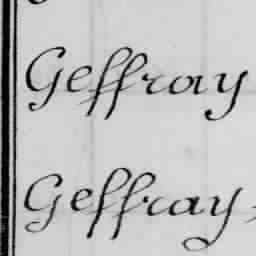 Geffray
Geffray